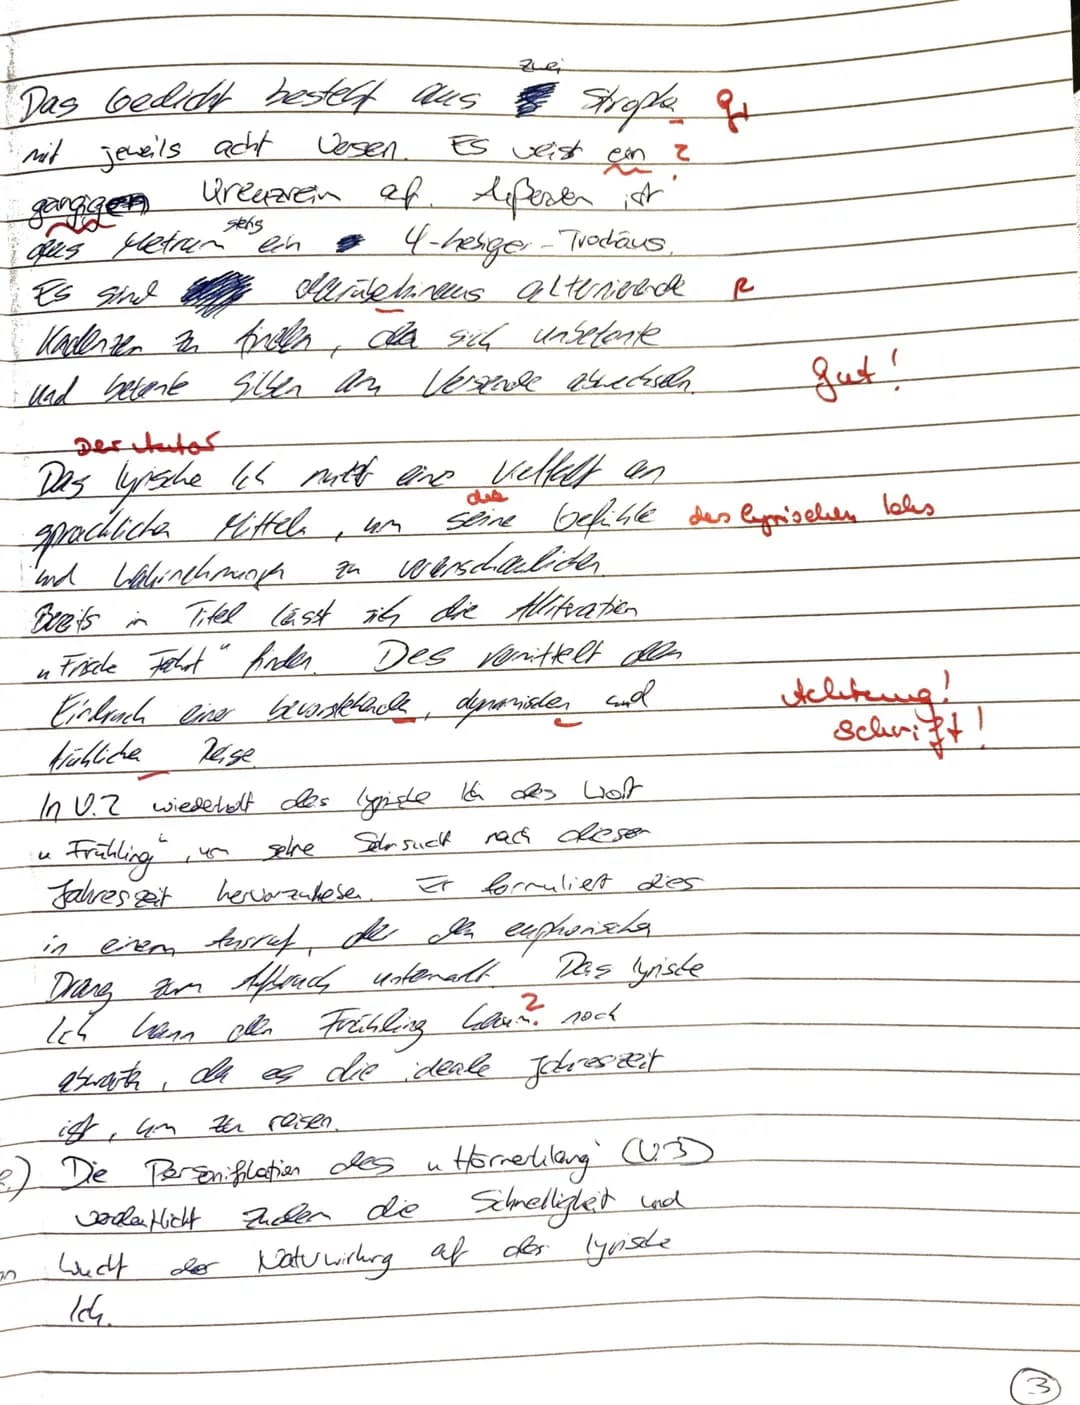 zwei
Das Gedicht besteht aus Strophe g+
mit jeweils acht Versen. Es weist ein ?
gängigen Kreuzreim auf. Außerdem ist
stetig
das Metrum ein 4-hebiger-Trochäus.
Es sind darüberhinaus alternierende R
Kadenzen zu finden, da sich unbetonte
und betonte Silben am Versende abwechseln. gut!
Der Autor
Das lyrische Ich nutzt eine Vielfalt an
die
sprachlichen Mitteln, um seine Gefühle des lyrischen Ichs
und Wahrnehmungen zu veranschaulichen.
Bereits im Titel lässt sich die Alliteration
"Frische Fahrt" finden. Das vermittelt den
Eindruck einer bevorstehenden, dynamischen und Achtung!
Schrift!
fröhlichen Reise.
In V.2 wiederholt das lyrische Ich das Wort
"Frühling", um seine Sehnsucht nach dieser
Jahreszeit hervorzuheben. Er formuliert dies
in einem Ausruf, der den euphorischen
Drang zum Aufbruch untermalt. Das lyrische
?
Ich kann den Frühling kaum noch
abwarten, da es die ideale Jahreszeit
ist, um zu reisen.
Die Personifikation des "Hörnerklang" (V.3)
verdeutlicht zudem die Schnelligkeit und
Wucht der Naturwirkung auf das lyrische
Ich.
3